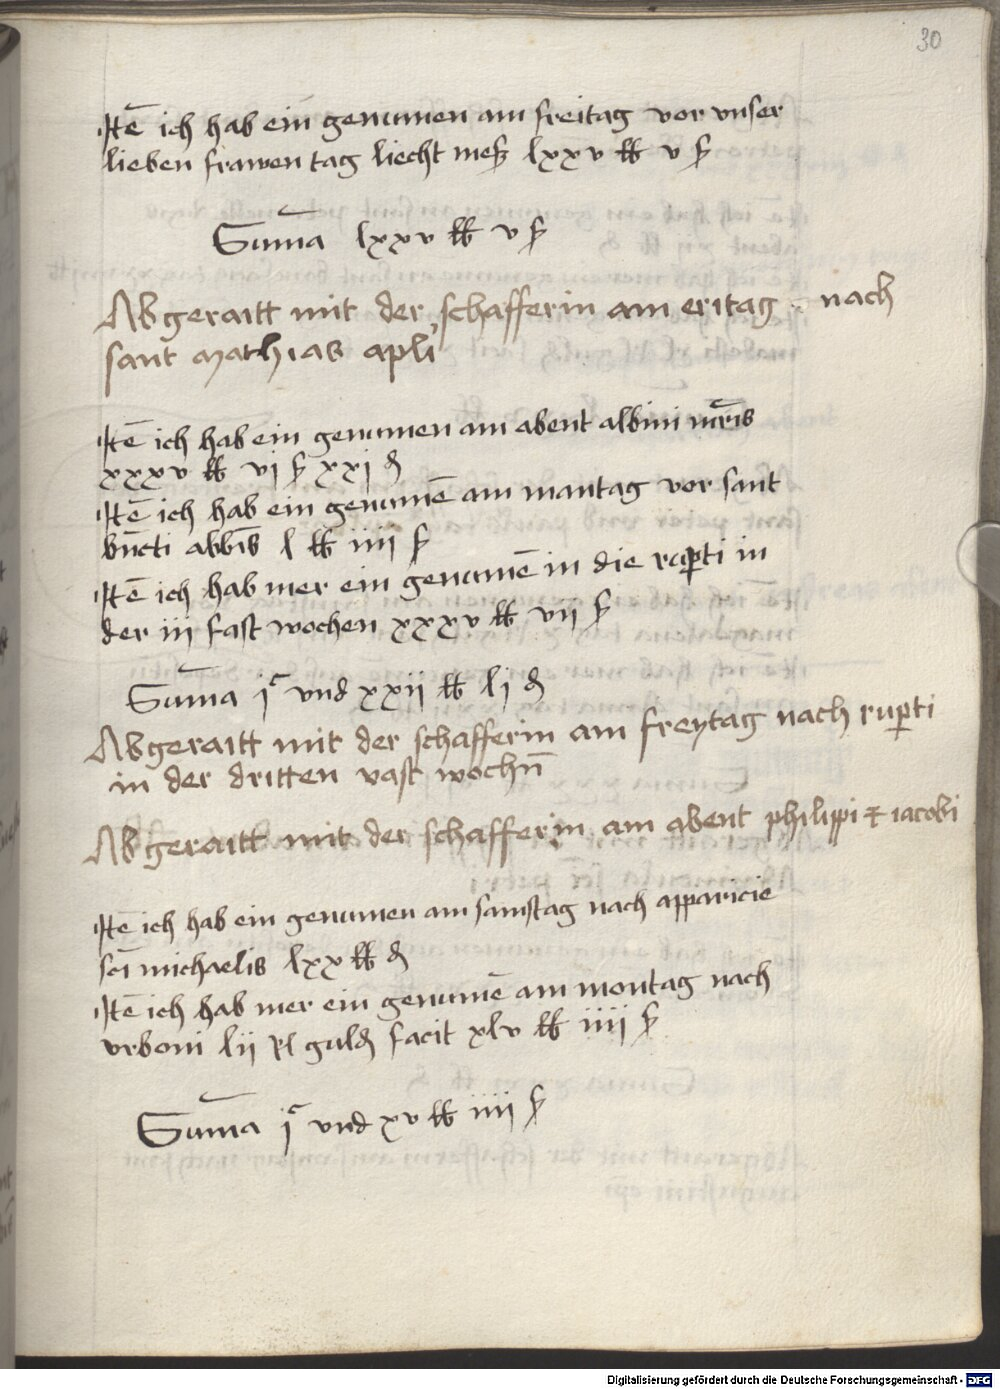 30
Itē ich hab ein genumen am freitag vor vnser
lieben frawen tag liecht meß lxxv lb v ß
Sum̄a lxxv lb v ß
Abgeraitt mit der schafferin am eritag nach
sant mathias apli
Itē ich hab ein genumen am abent albini mr̄is
xxxv lb vi ß xxi ₰
Itē ich hab ein genumē am mantag vor sant
bn̄cti abb̄is l lb iiii ß
Itē ich hab mer ein genumē in die rup̄ti in
der iii fast wochen xxxv lb vii ß
Sum̄a jᶜ vnd xxii lb li ₰
Abgeraitt mit der schafferin am freytag nach rup̄ti
in der dritten vast wochn̄
Abgeraitt mit der schafferin am abent philippi ⁊ iacobi
Itē ich hab ein genumen am samstag nach apparicie
sc̄i michaelis lxx lb ₰
Itē ich hab mer ein genumē am montag nach
vrboni lii Rl guld̄ facit xlv lb iiii ß
Sum̄a jᶜ vnd xv lb iiii ß
Digitalisierung gefördert durch die Deutsche Forschungsgemeinschaft - DFG